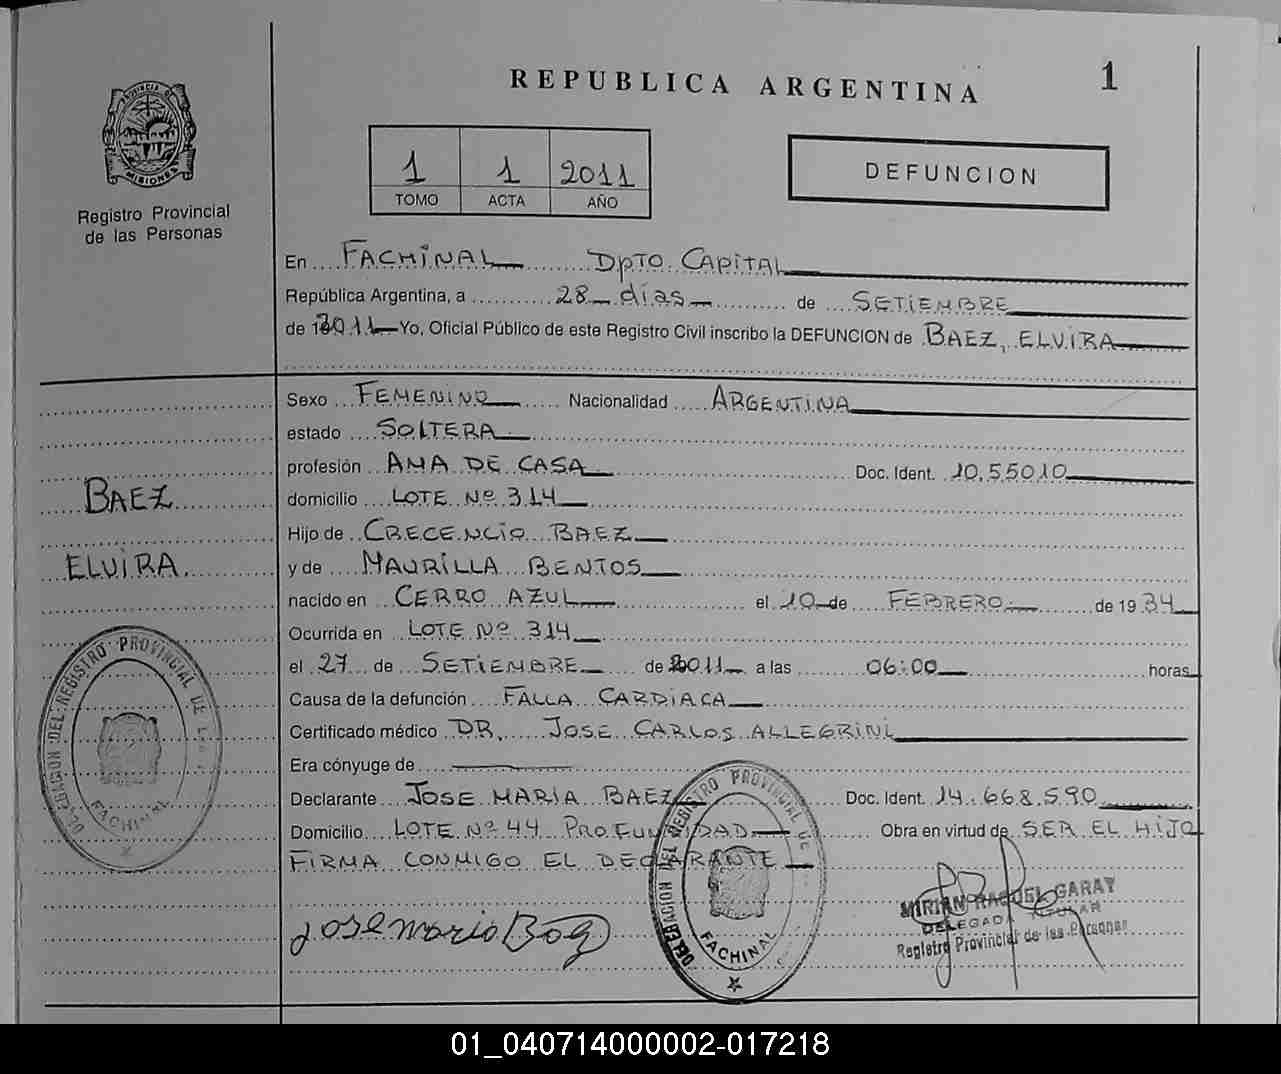 REPUBLICA ARGENTINA
1
PROVINCIA DE
MISIONES
Registro Provincial
de las Personas
1 1 2011
TOMO ACTA AÑO
DEFUNCION
En FACHINAL Dpto CAPITAL
República Argentina, a 28 días de SETIEMBRE
de 2011 Yo, Oficial Público de este Registro Civil inscribo la DEFUNCION de BAEZ, ELVIRA
Sexo FEMENINO Nacionalidad ARGENTINA
estado SOLTERA
profesión AMA DE CASA Doc. Ident. 10.55010
BAEZ
ELVIRA
domicilio LOTE Nº 314
Hijo de CRECENCIO BAEZ
y de MAURILLA BENTOS
nacido en CERRO AZUL el 10 de FEBRERO de 1934
Ocurrida en LOTE Nº 314
el 27 de SETIEMBRE de 2011 a las 06:00 horas
Causa de la defunción FALLA CARDIACA
Certificado médico DR. JOSE CARLOS ALLEGRINI
Era cónyuge de
Declarante JOSE MARIA BAEZ Doc. Ident. 14.668.590
Domicilio LOTE Nº 44 PROFUNDIDAD Obra en virtud de SER EL HIJO
FIRMA CONMIGO EL DECLARANTE
DELEGACION DEL REGISTRO PROVINCIAL DE
FACHINAL
Jose Mario Baez
DELEGACION DEL REGISTRO PROVINCIAL DE
FACHINAL
MIRIAN RAQUEL GARAY
DELEGADA TITULAR
Registro Provincial de las Personas
01_040714000002-017218